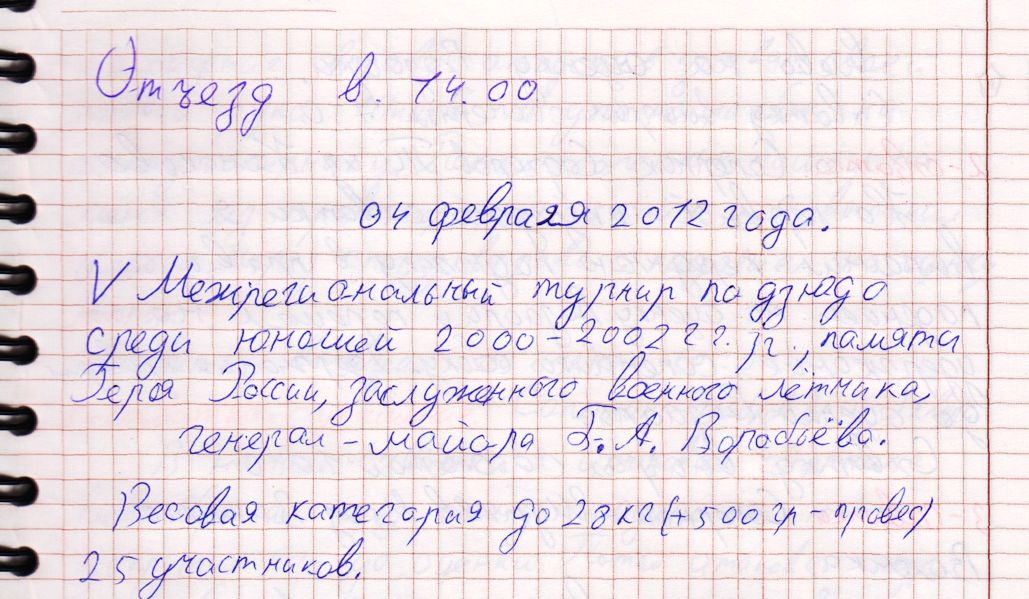 Отъезд в. 14.00
04 февраля 2012 года.
V Межрегиональный турнир по дзюдо
среди юношей 2000-2002 г г. р., памяти
Героя России, заслуженного военного лётчика,
генерал-майора Б. А. Воробьёва.
Весовая категория до 28 кг (+500 гр - провес)
25 участников.